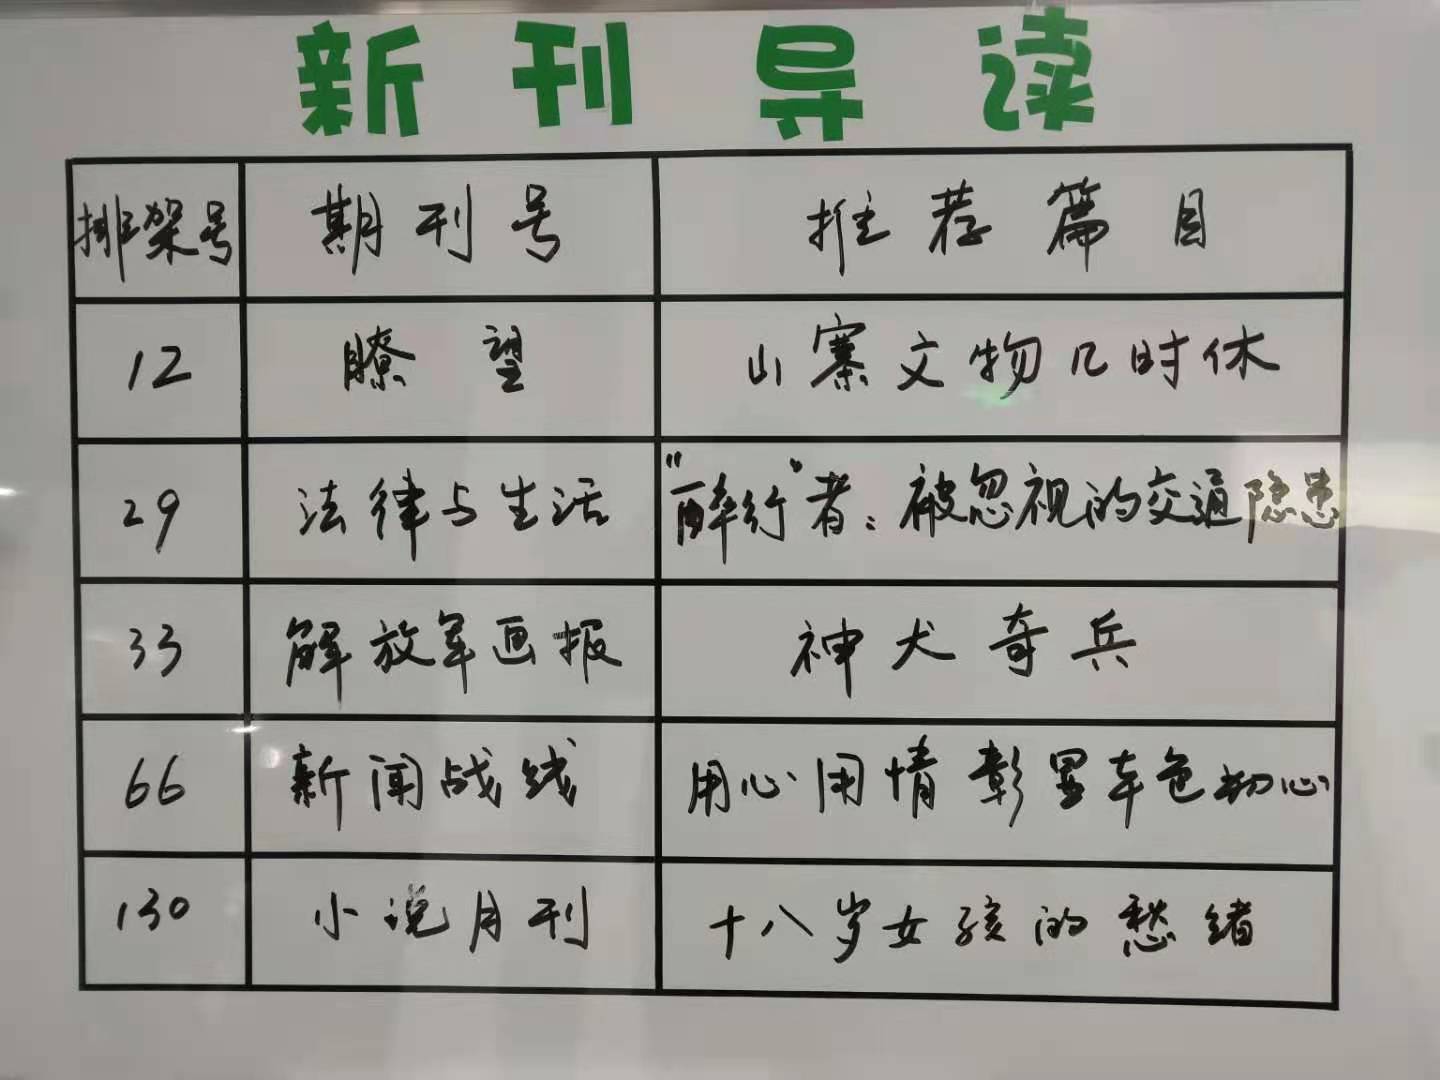 新刊导读
排架号 期刊号 推荐篇目
12 瞭望 山寨文物几时休
29 法律与生活 "醉行"者：被忽视的交通隐患
33 解放军画报 神犬奇兵
66 新闻战线 用心用情彰显本色初心
130 小说月刊 十八岁女孩的愁绪